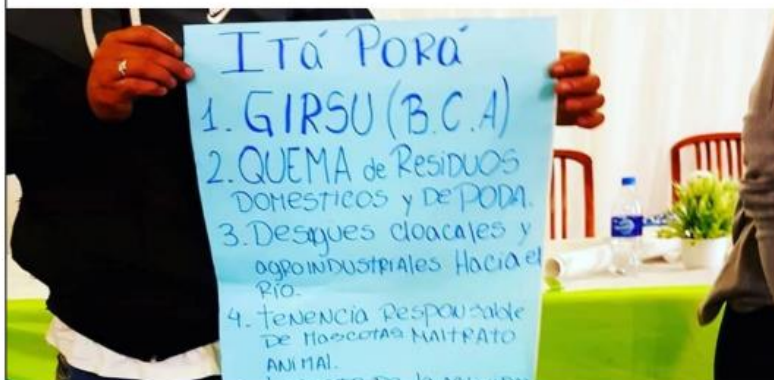 ITá PORá
1. GIRSU (B.C.A)
2. QUEMA de RESIDUOS
DOMESTICOS y DE PODA.
3. Desagues cloacales y
agroindustriales Hacia el
RÍO.
4. Tenencia Responsable
DE MASCOTAS MALTRATO
ANIMAL.